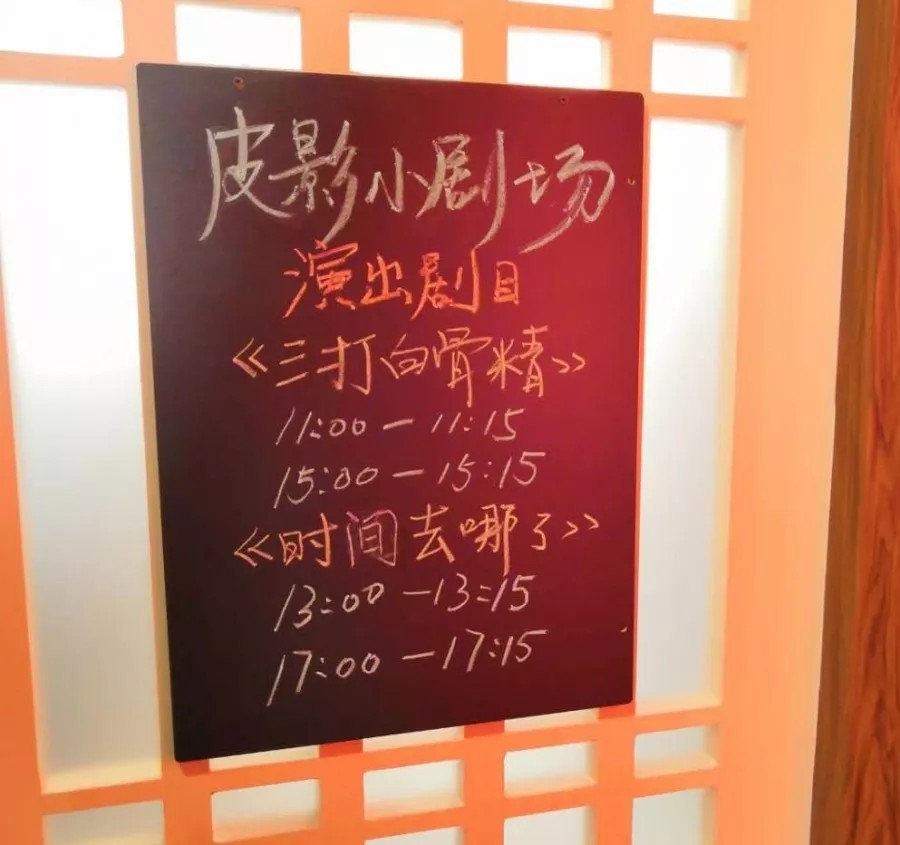 皮影小剧场
演出剧目
《三打白骨精》
11:00-11:15
15:00-15:15
《时间去哪了》
13:00-13:15
17:00-17:15